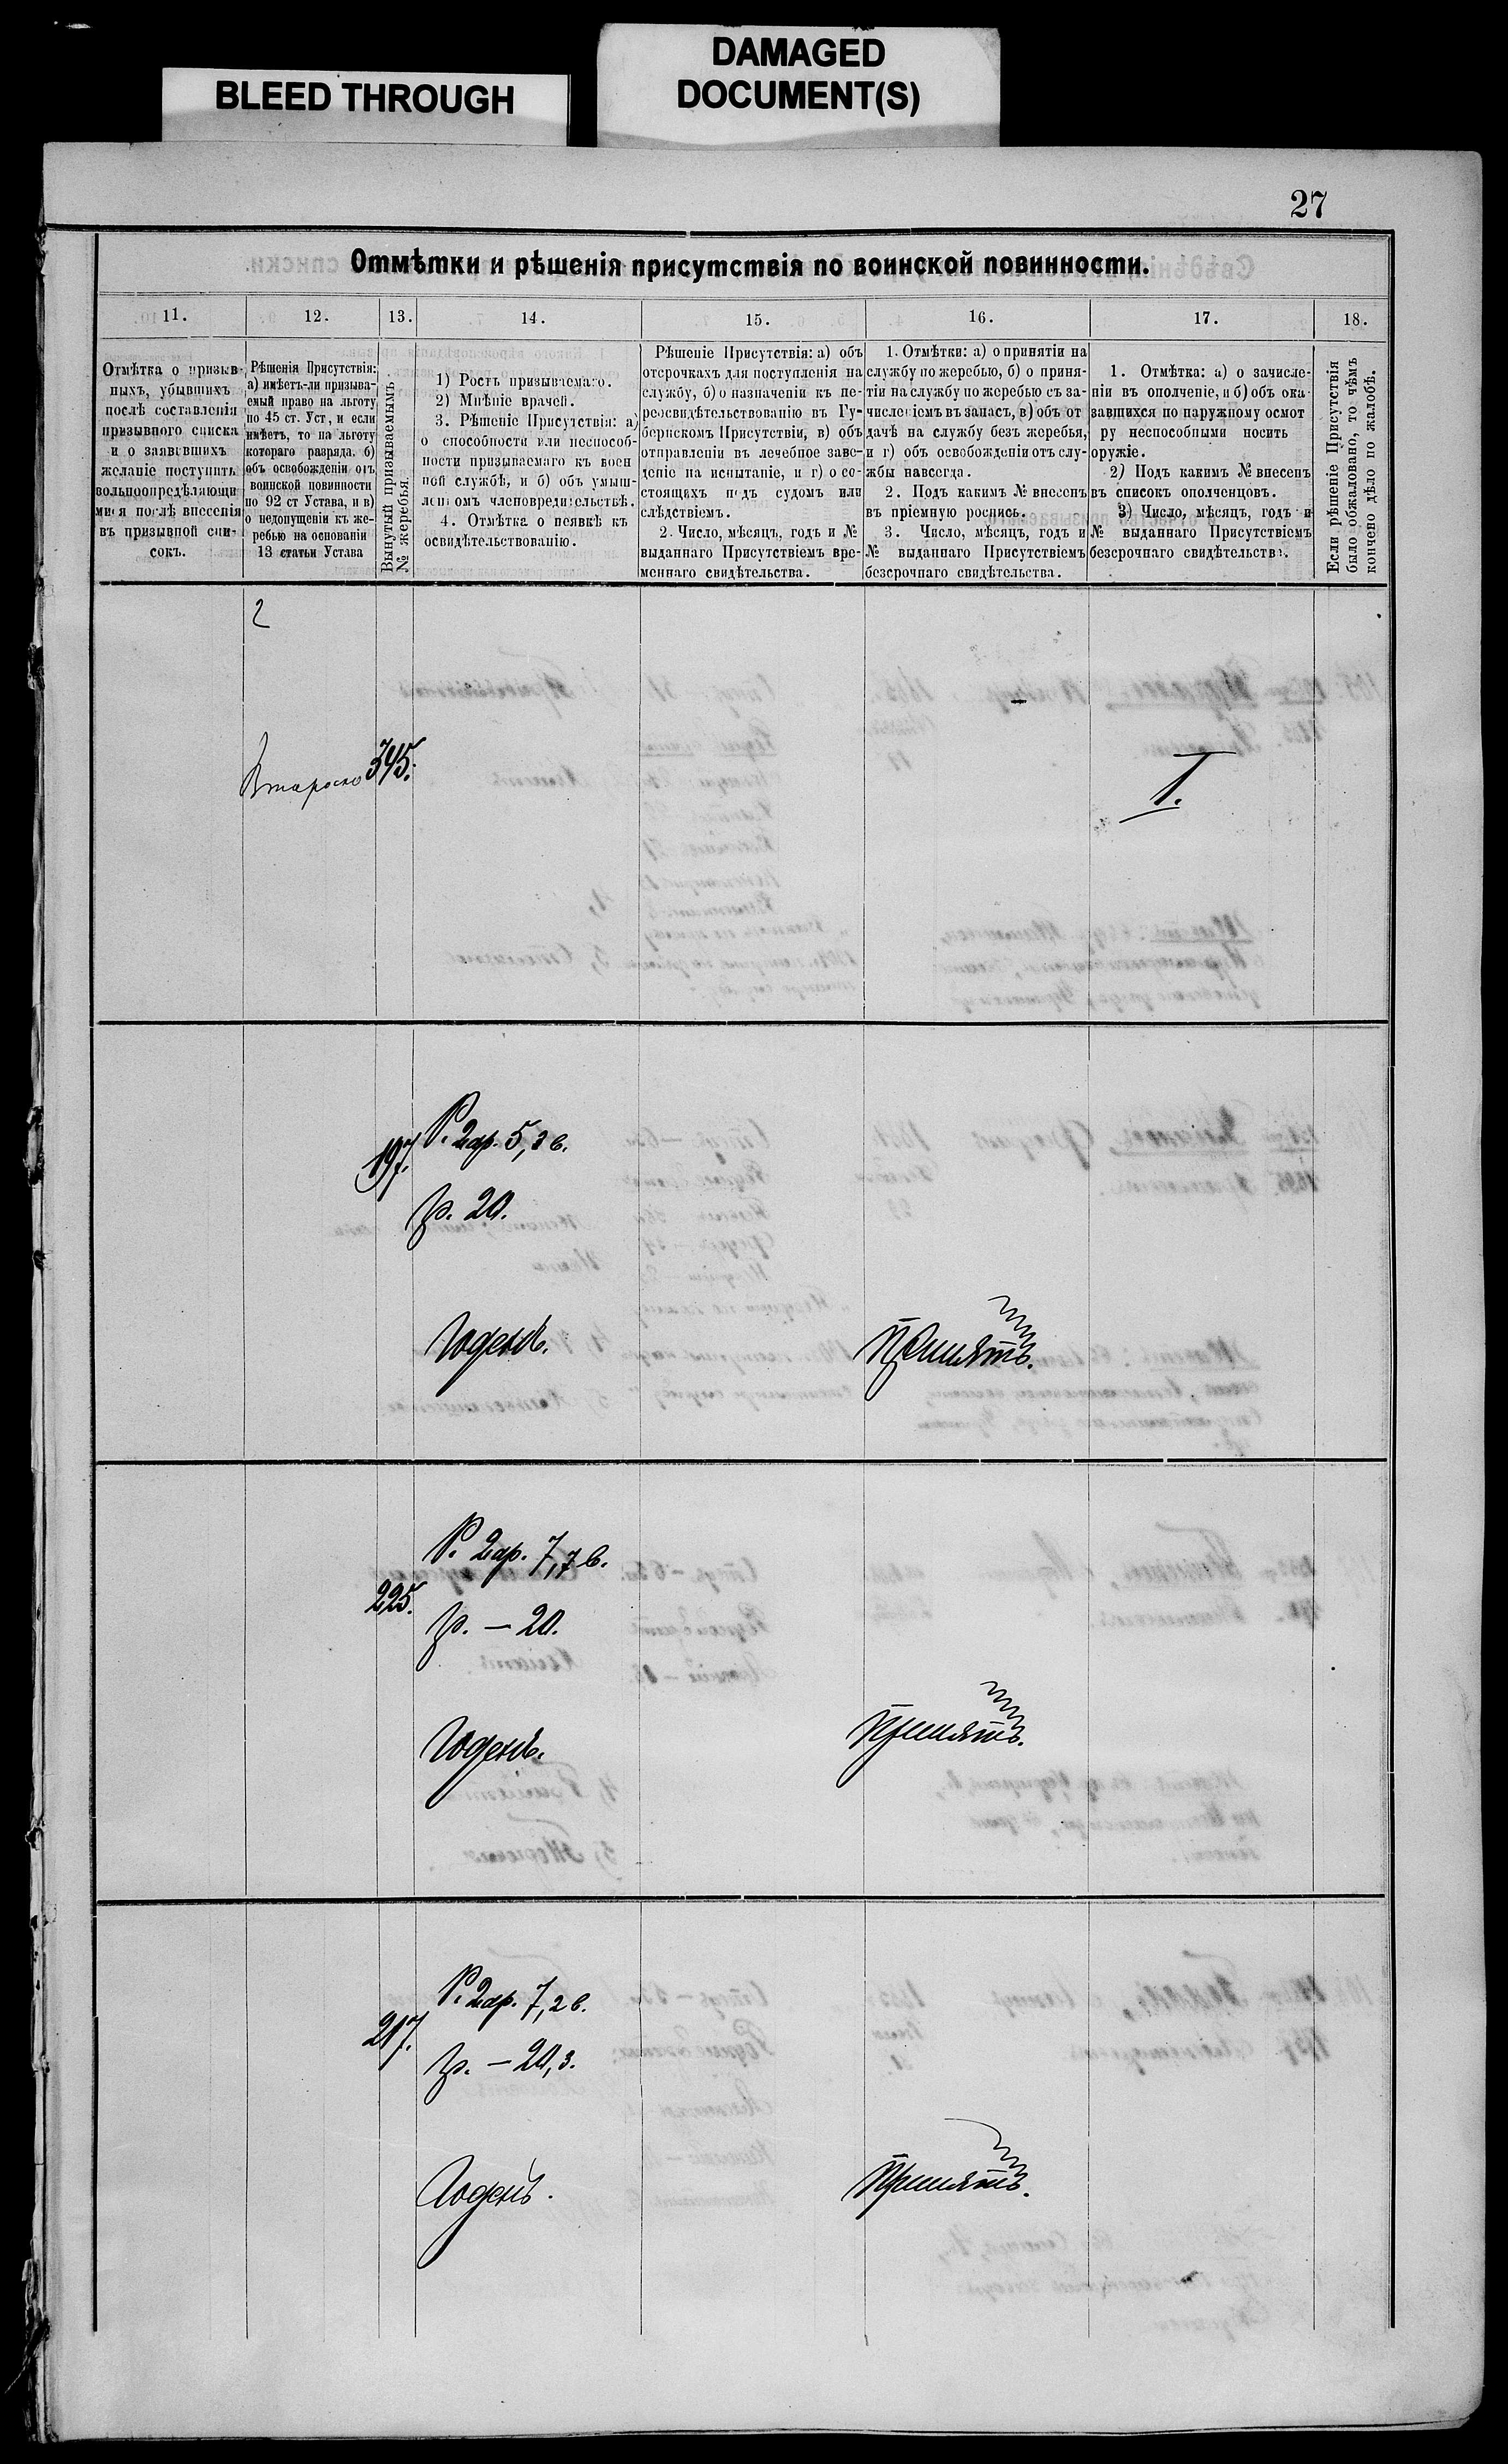 BLEED THROUGH
DAMAGED
DOCUMENT(S)
27
Отмѣтки и рѣшенія присутствія по воинской повинности.
11. 12. 13. 14. 15. 16. 17. 18.
Отмѣтка о призыв-
ныхъ, убывшихъ
послѣ составленія
призывного списка
и о заявившихъ
желаніе поступить
вольноопредѣляющи
мися послѣ внесенія
въ призывной спи-
сокъ.
Рѣшенія Присутствія:
а) имѣетъ-ли призыва-
емый право на льготу
по 45 ст. Уст, и если
имѣетъ, то на льготу
котораго разряда. б)
объ освобожденіи отъ
воинской повинности
по 92 ст Устава, и в)
о недопущеніи къ же-
ребью на основаніи
13 статьи Устава
Вынутый призываемымъ
№ жеребья.
1) Ростъ призываемаго.
2) Мнѣніе врачей.
3. Рѣшеніе Присутствія: а)
о способности или неспособ-
ности призываемаго къ воен
ной службѣ, и б) объ умыш-
леномъ членовредительствѣ.
4. Отмѣтка о неявкѣ къ
освидѣтельствованію.
Рѣшеніе Присутствія: а) объ
отсрочкахъ для поступленія на
службу, б) о назначеніи къ пе-
реосвидѣтельствованію въ Гу-
бернскомъ Присутствіи, в) объ
отправленіи въ лечебное заве-
деніе на испытаніе, и г) о со-
стоящихъ подъ судомъ или
слѣдствіемъ.
2. Число, мѣсяцъ, годъ и №
выданнаго Присутствіемъ вре-
меннаго свидѣтельства.
1. Отмѣтки: а) о принятіи на
службу по жеребью, б) о приня-
тіи на службу по жеребью съ за-
численіемъ въ запасъ, в) объ от
дачѣ на службу безъ жеребья,
и г) объ освобожденіи отъ слу-
жбы навсегда.
2. Подъ какимъ № внесенъ
въ пріемную роспись.
3. Число, мѣсяцъ, годъ и
№ выданнаго Присутствіемъ
безсрочнаго свидѣтельства.
1. Отмѣтка: а) о зачисле-
ніи въ ополченіе, и б) объ ока-
завшихся по наружному осмот
ру неспособными носить
оружіе.
2) Подъ какимъ № внесенъ
въ списокъ ополченцовъ.
3) Число, мѣсяцъ, годъ и
№ выданнаго Присутствіемъ
безсрочнаго свидѣтельства.
Если рѣшеніе Присутствія
было обжаловано, то чѣмъ
кончено дѣло по жалобѣ.
2
395.
I.
197.
Р. 2 ар. 5,3 в.
гр. 20.
Годенъ.
Принятъ.
225.
Р. 2 ар. 7,7 в.
гр. — 20.
Годенъ.
Принятъ.
217.
Р. 2 ар. 7,2 в.
гр. — 20,3.
Годенъ.
Принятъ.